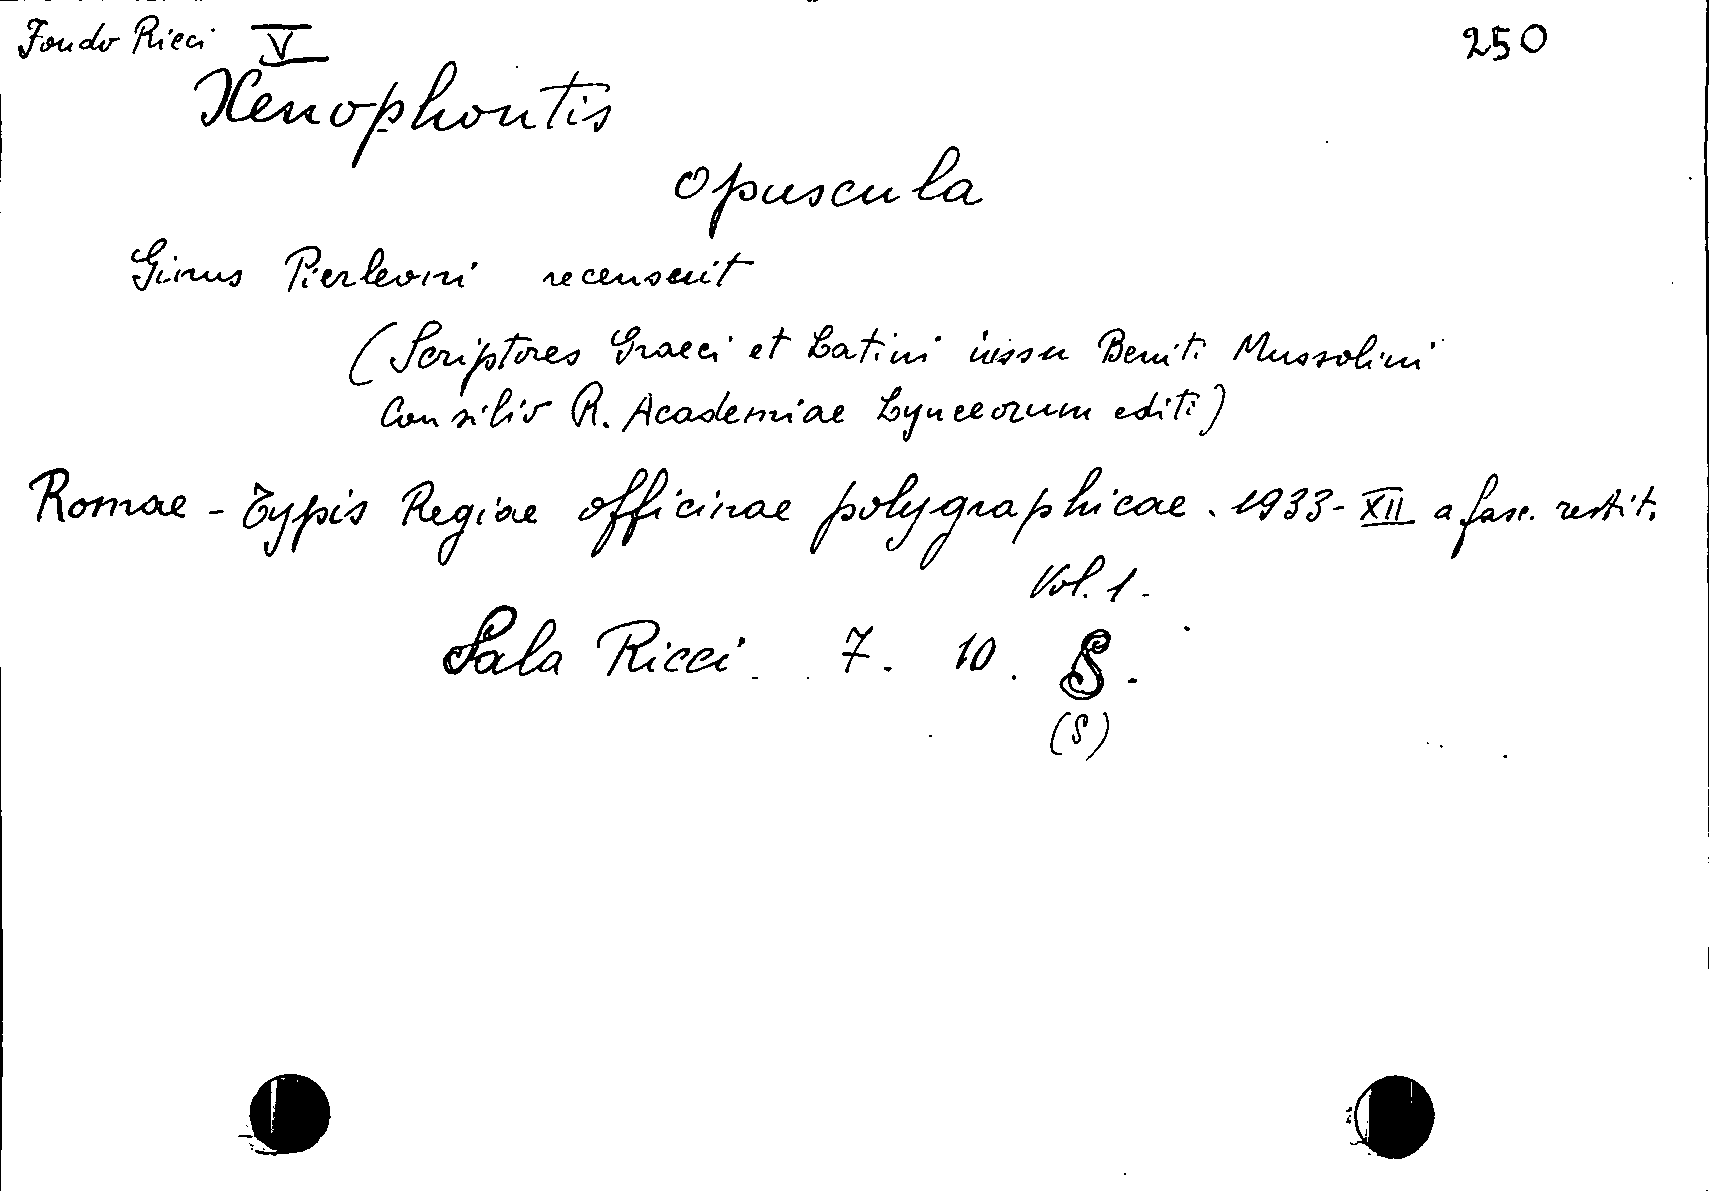 Fondo Ricci V 250
Xenophontis
opuscula
Ginus Pierleoni recensuit
(Scriptores Graeci et Latini iussu Beniti Mussolini
Consilio R. Academiae Lynceorum editi)
Romae - Typis Regiae officinae polygraphicae. 1933 - XII a fasc. restit.
Vol. 1.
Sala Ricci. 7. 10. S.
(S)